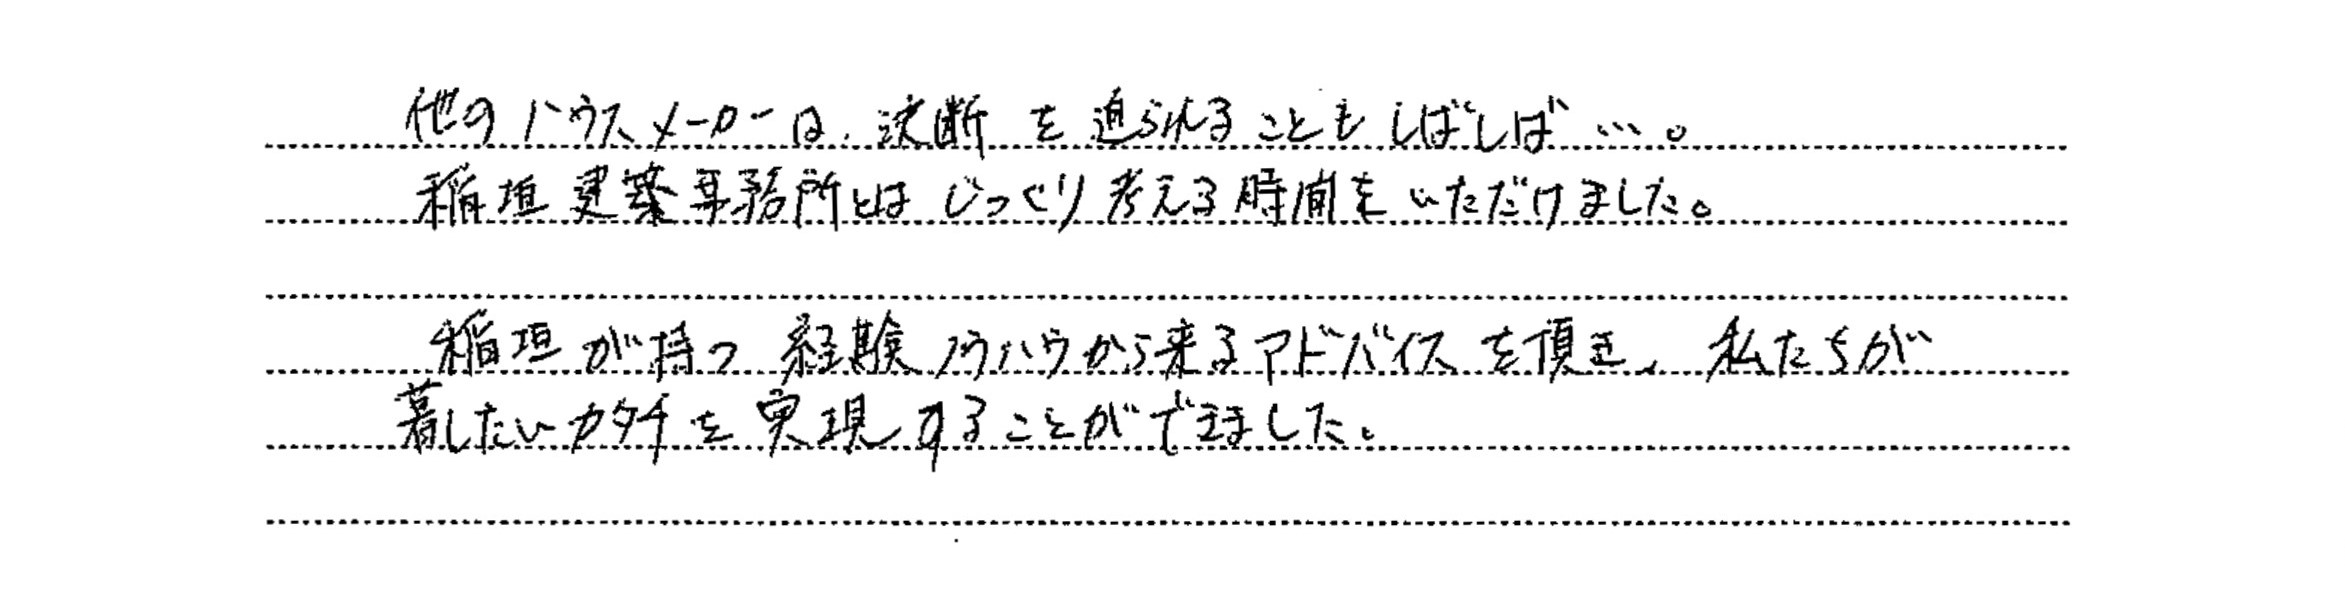 他のハウスメーカーは、決断を迫られることもしばしば…。
稲垣建築事務所とはじっくり考える時間をいただけました。
稲垣が持つ経験ノウハウから来るアドバイスを頂き、私たちが
暮したいカタチを実現することができました。